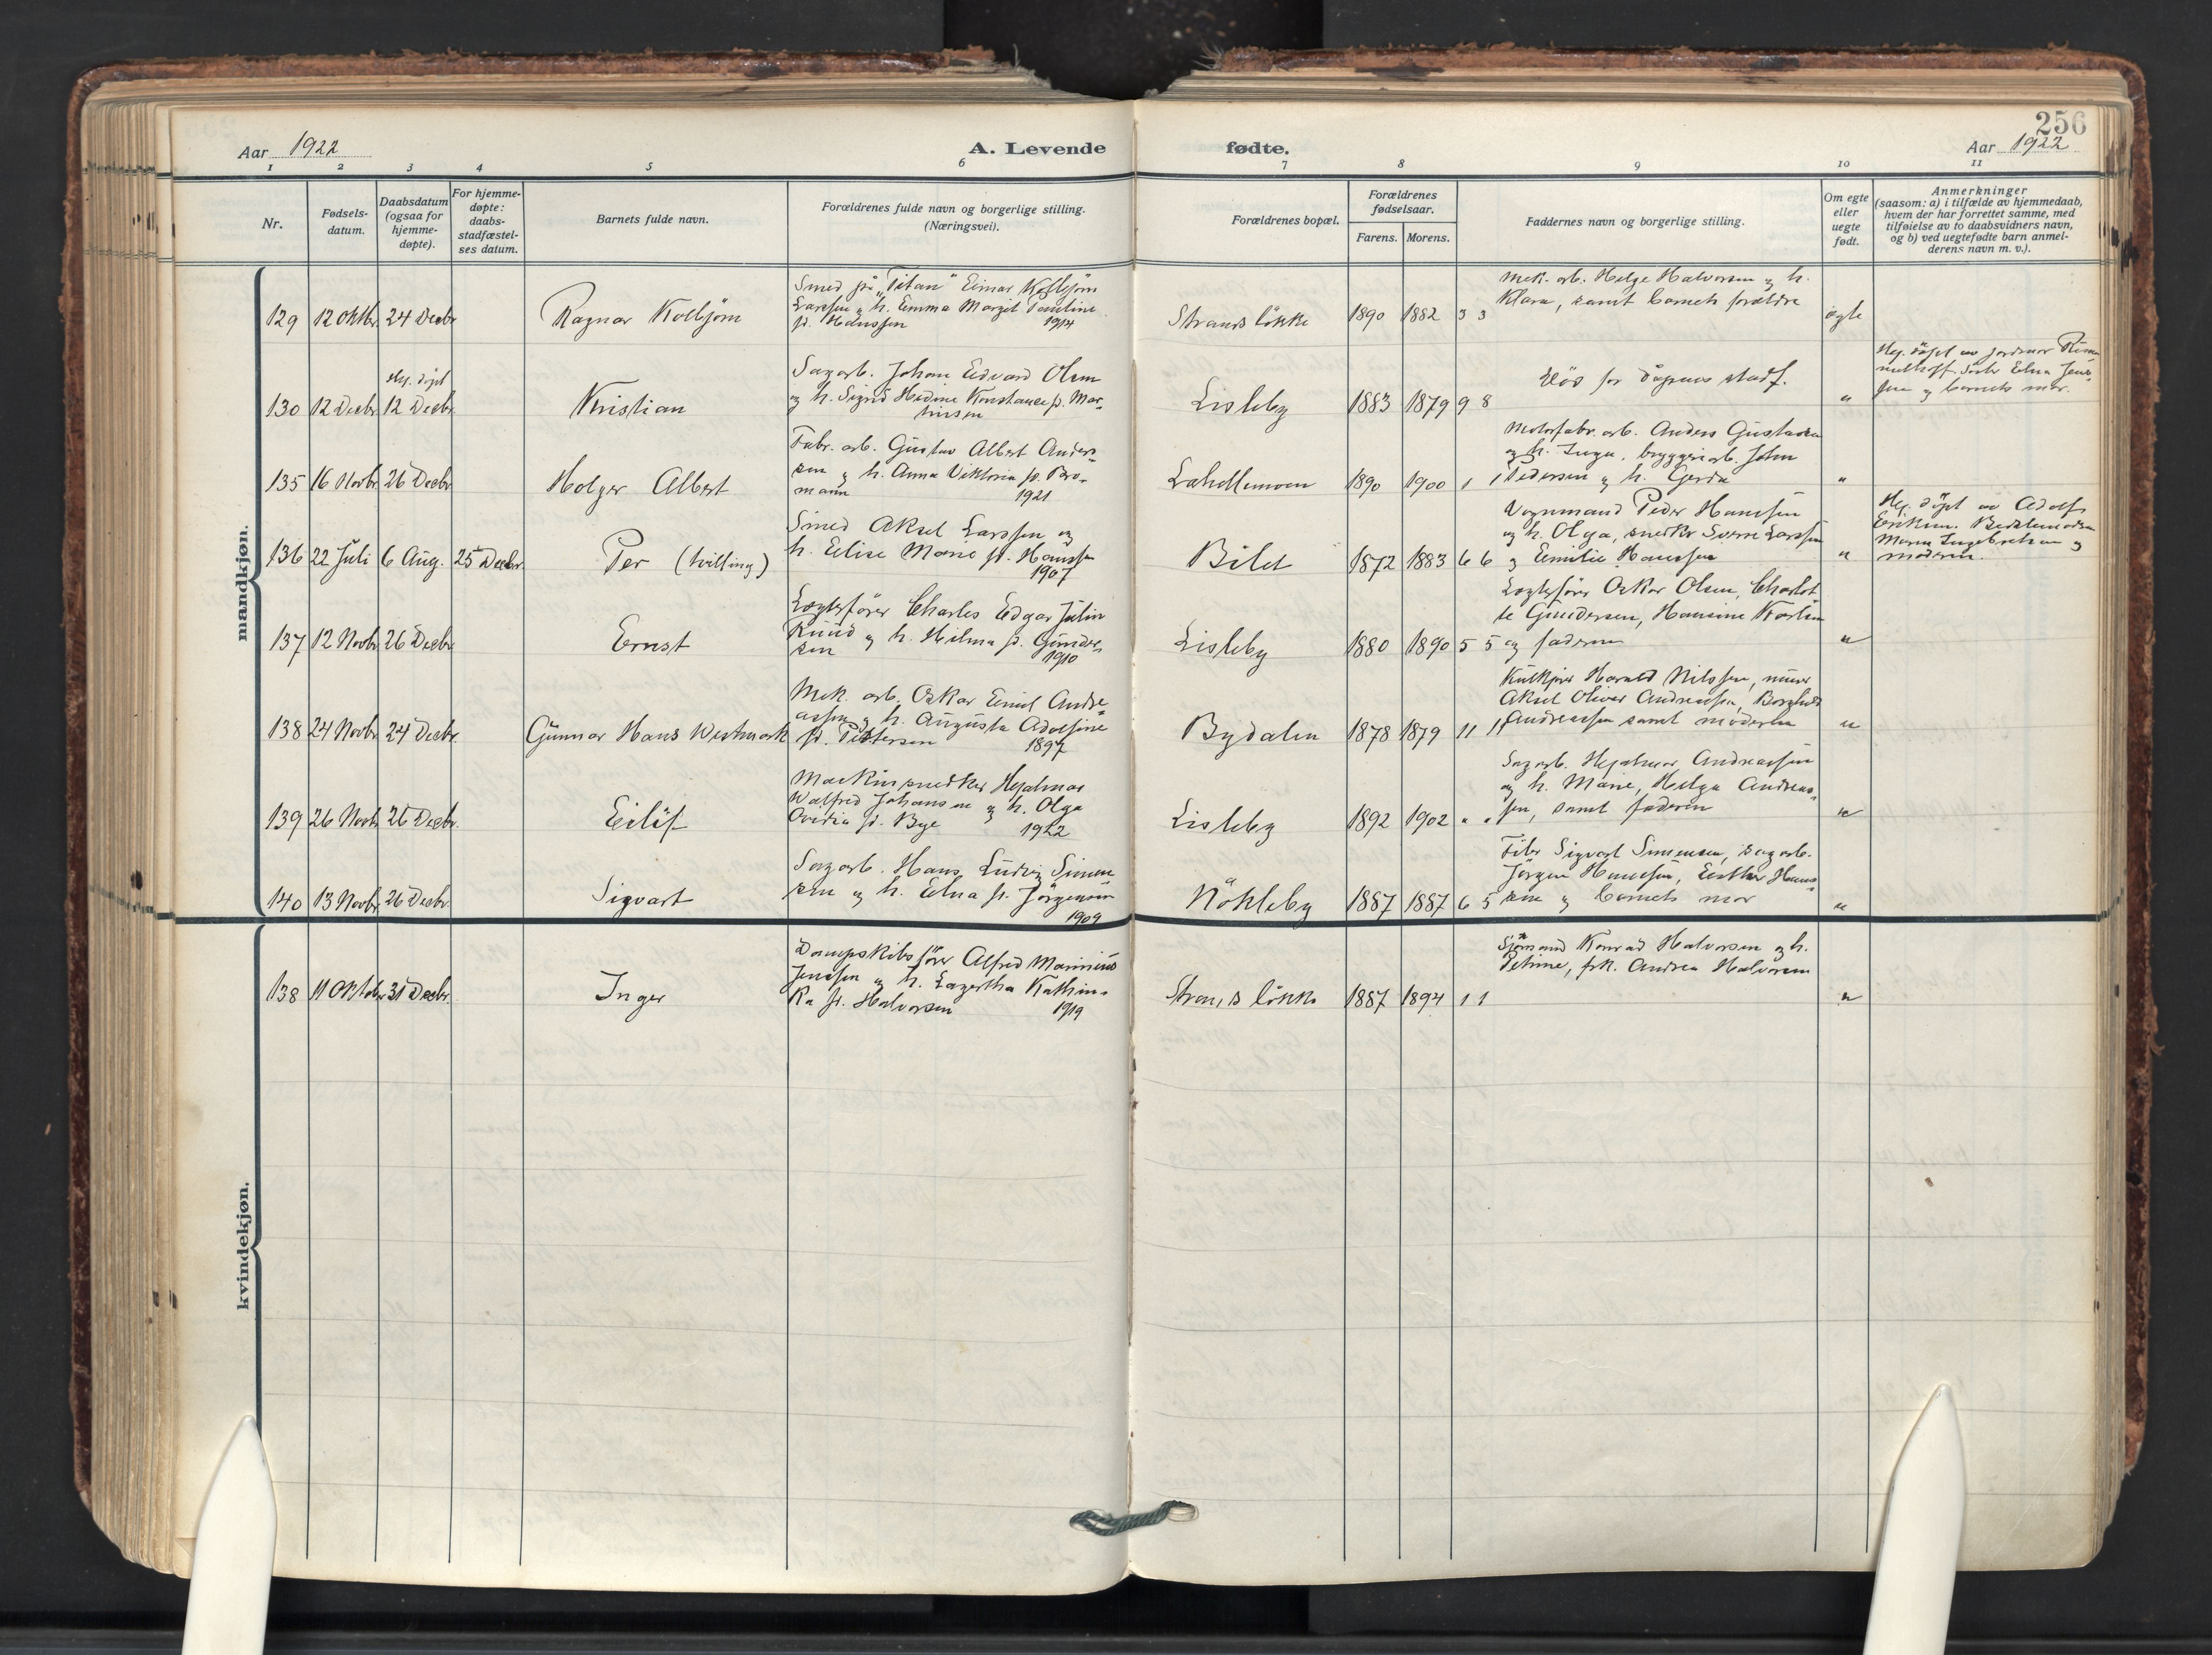 256
Aar 1922
A. Levende
fødte.
Aar 1922
1 2 3 4 5 6 7 8 9 10 11
Nr.
Fødsels-
datum.
Daabsdatum
(ogsaa for
hjemme-
døpte).
For hjemme-
døpte:
daabs-
stadfæstel-
ses datum.
Barnets fulde navn.
Forældrenes fulde navn og borgerlige stilling.
(Næringsvei).
Forældrenes bopæl.
Forældrenes
fødselsaar.
Farens. Morens.
Faddernes navn og borgerlige stilling.
Om egte
eller
uegte
født.
Anmerkninger
(saasom: a) i tilfælde av hjemmedaab,
hvem der har forrettet samme, med
tilføielse av to daabsvidners navn,
og b) ved uegtefødte barn anmel-
derens navn m. v.).
mandkjøn.
129 12 Oktbr. 24 Decbr
Ragnar Kolbjörn
Smed på "Titan" Einar Kolbjörn
Larssen & h. Emma Margit Pauline
f. Hanssen 1914
Strandsløkke
1890 1882 3 3
Mek. arb. Helge Halvorsen & h.
Klara, samt barnets forældre
ägte
130 12 Decbr.
Hj. döpt
12 Decbr.
Kristian
Sagarb. Johan Edvard Olsen
og h. Sigrid Hedine Konstance f. Mar-
tinsen
Lisleby
1883 1879 9 8
Död før dåpens stadf.
"
Hj. döpt av jordmor
Edna Jens-
sen & barnets mor.
135 16 Novbr. 26 Decbr
Holger Albert
Fabr. arb. Gustav Albert Ander-
sen & h. Anna Viktoria f. Bro-
mann 1921
Lahellemoen
1890 1900 1 1
Motorfabr. arb. Anders Gustavsen
og h. Inga, bryggeriarb. John
Pedersen & h. Gerda
"
136 22 Juli 6 Aug. 25 Decbr.
Per (tvilling)
Smed Aksel Larssen og
h. Elise Marie f. Hanssen
1907
Bildt
1872 1883 6 6
Vognmand Peder Hanssen
og h. Olga, snedker Sverre Larssen
& Emilie Hanssen
"
Hj. döpt av Adolf
Eriksen.
Maren Ingebretsen &
moderen.
137 12 Novbr. 26 Decbr.
Ernst
Lægterfører Charles Edgar Julin
Ruud & h. Hilma f. Gunder-
sen 1910
Lisleby
1880 1890 5 5
Lægterfører Oskar Olsen, Charlot
te Gundersen, Hansine Karlsen
og faderen
"
138 24 Novbr. 24 Decbr.
Gunnar Hans Westmark
Mek. arb. Oskar Emil Andre-
assen & h. Augusta Adolfine
f. Pettersen 1897
Bydalen
1878 1879 11 11
Kulkjører Harald Nilssen, murer
Aksel Oliver Andreassen, Borghild
Andreassen samt moderen
"
139 26 Novbr. 26 Decbr.
Eilif
Maskinsnedker Hjalmar
Walfred Johansen & h. Olga
Ovidia f. Bye 1922
Lisleby
1892 1902 " "
Sagarb. Hjalmar Andreassen
og h. Marie, Helga Andreas-
sen, samt faderen
"
140 13 Novbr. 26 Decbr.
Sigvart
Sagarb. Hans Ludvig Simen
sen & h. Edna f. Jörgensen
1909
Nökleby
1887 1887 6 5
Filer Sigvart Simensen, sagarb.
Jörgen Hanssen, Esther Hans-
sen & barnets mor
"
kvindekjøn.
138 11 Oktober 31 Decbr.
Inger
Dampskibsfører Alfred Marinius
Jenssen & h. Lagertha Kathin-
ka f. Halvorsen 1919
Strandsløkke
1887 1894 1 1
Sjømand Konrad Halvorsen og h.
Petrine, frk. Andrea Halvorsen
"